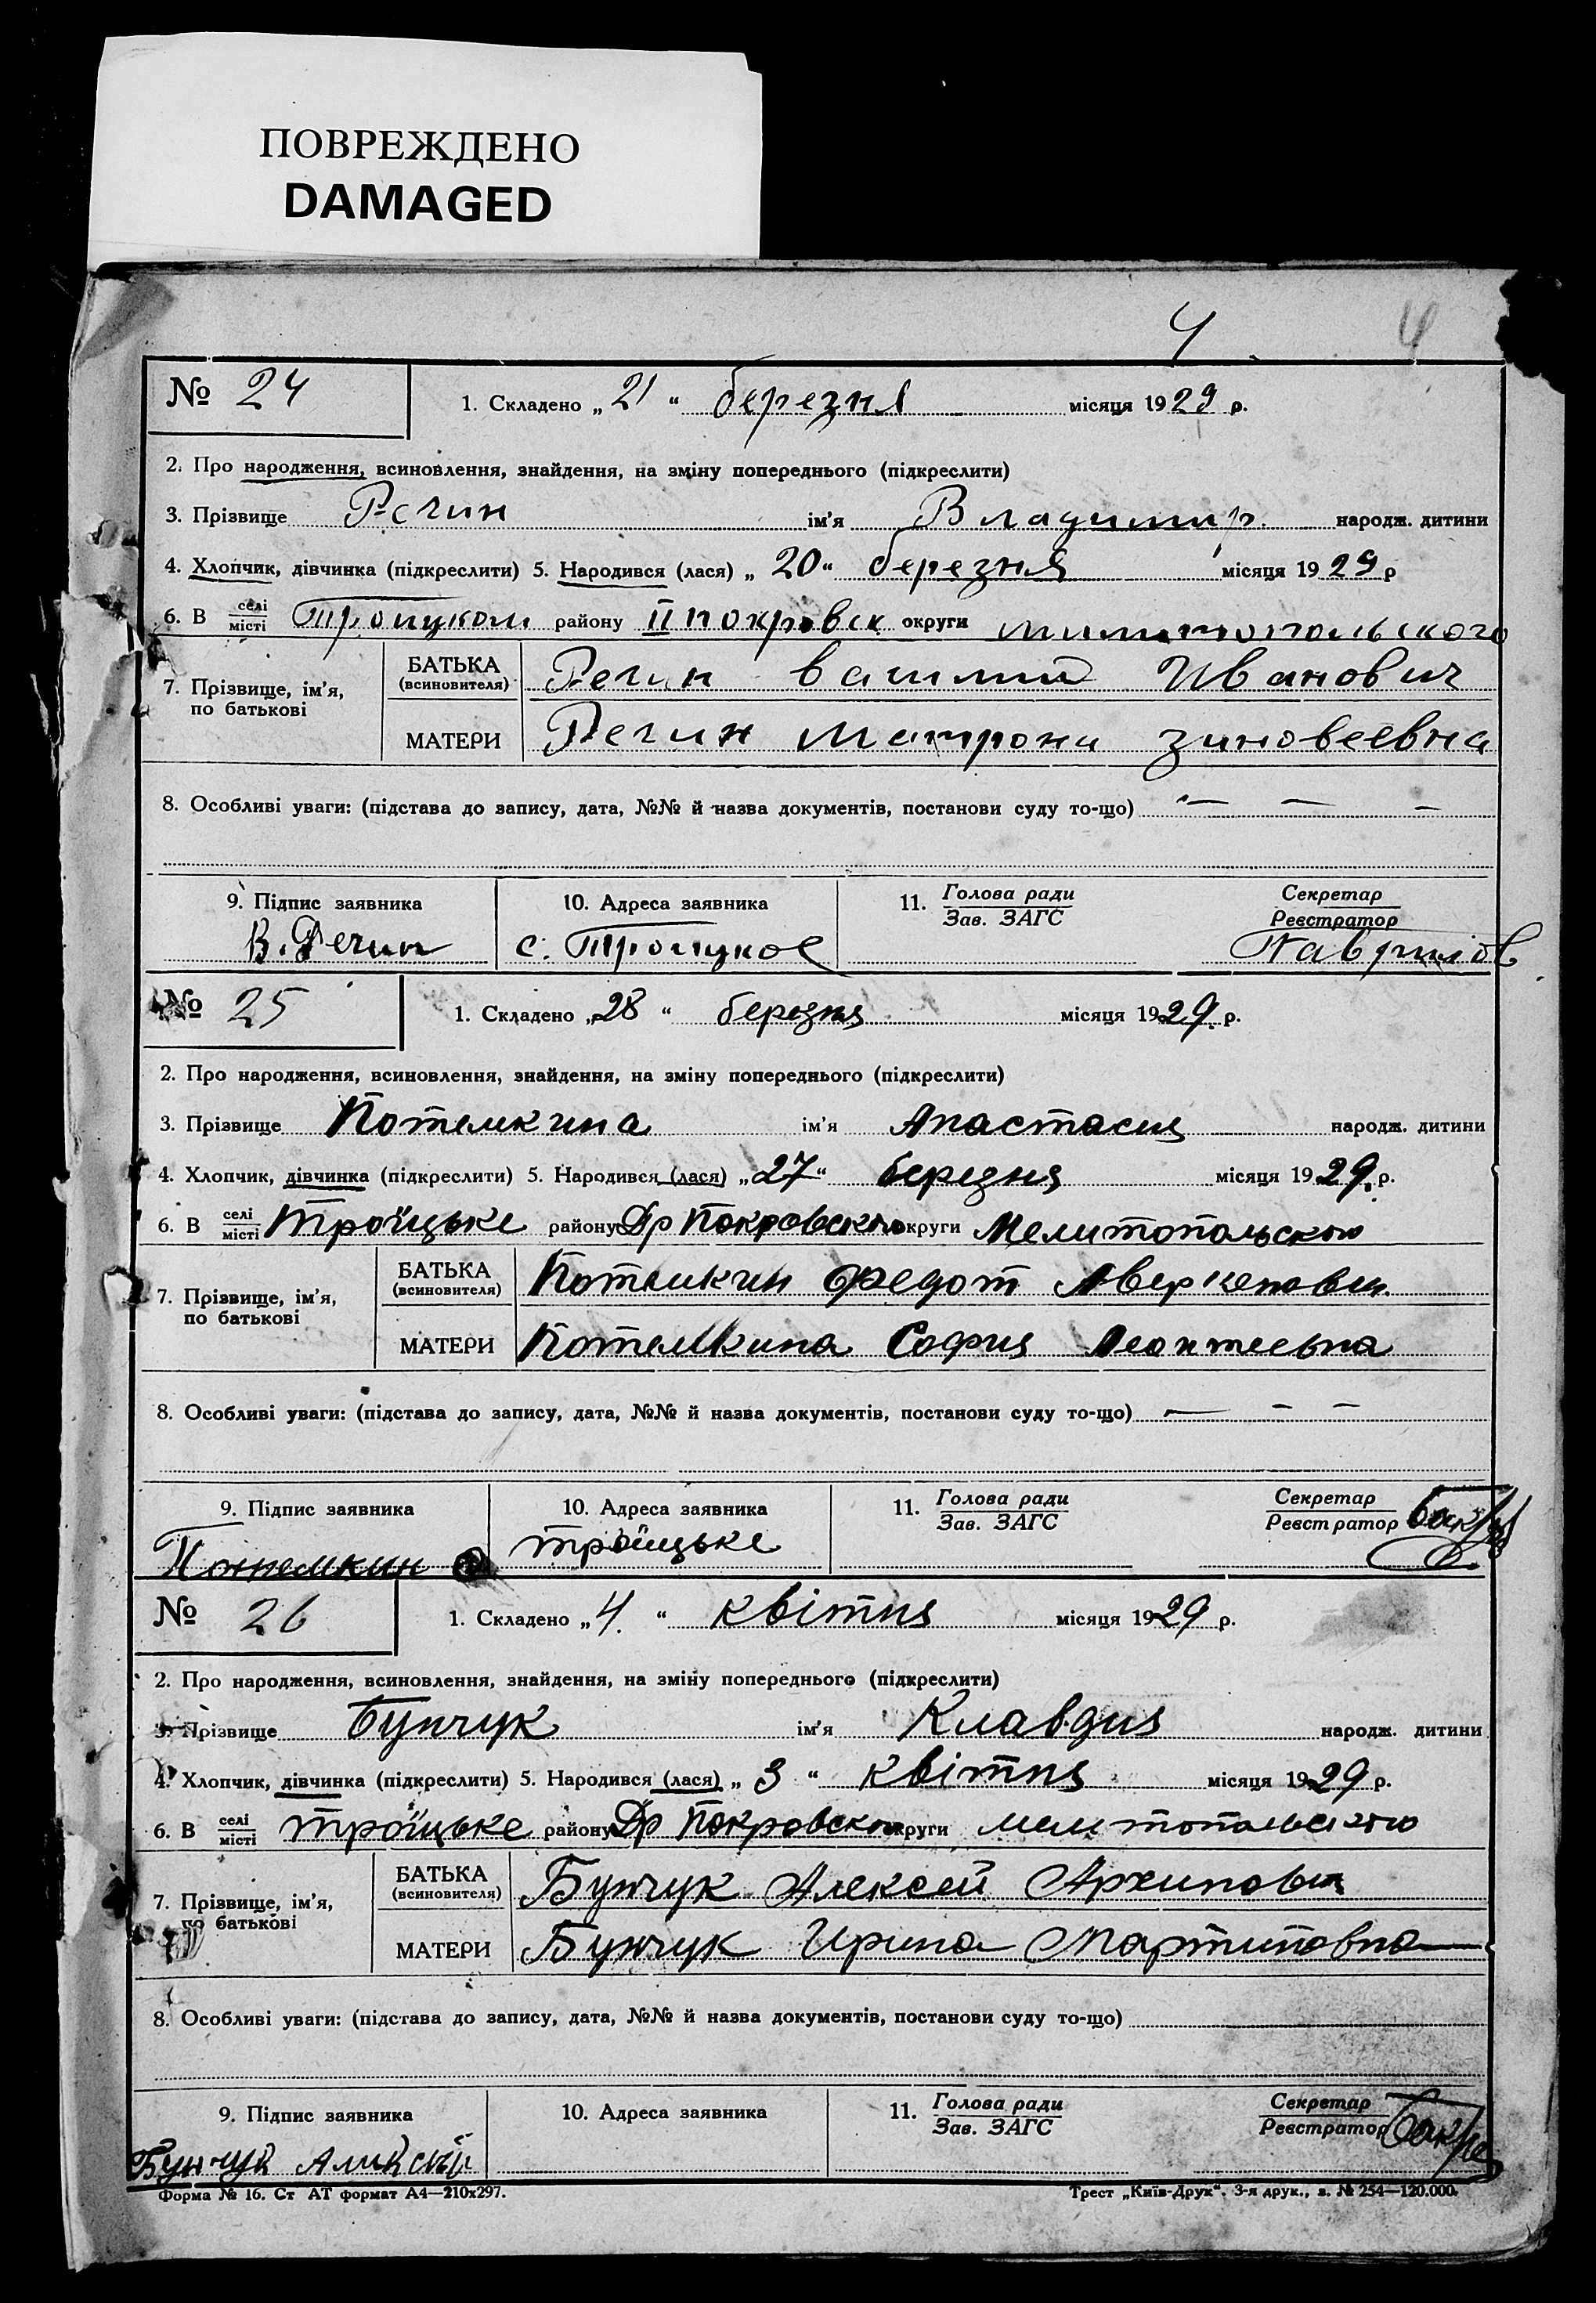 ПОВРЕЖДЕНО
DAMAGED
4 4
№ 24 1. Складено „ 21 “ березня місяця 1929 р.
2. Про народження, всиновлення, знайдення, на зміну попереднього (підкреслити)
3. Прізвище Речин ім'я Владимир народж. дитини
4. Хлопчик, дівчинка (підкреслити) 5. Народився (лася) „ 20 “ березня місяця 1929 р
6. В селі місті Троицком району покровск округи
7. Прізвище, ім'я, по батькові БАТЬКА (всиновителя) Речин Василий Иванович
МАТЕРИ Речин Матрона Зиновеевна
8. Особливі уваги: (підстава до запису, дата, №№ й назва документів, постанови суду то-що) — — —
9. Підпис заявника 10. Адреса заявника 11. Голова ради Зав. ЗАГС Секретар Реєстратор
В. Речин с. Троицкое
№ 25 1. Складено „ 28 “ березня місяця 1929. р.
2. Про народження, всиновлення, знайдення, на зміну попереднього (підкреслити)
3. Прізвище Потемкина ім'я Анастасия народж. дитини
4. Хлопчик, дівчинка (підкреслити) 5. Народився (лася) „ 27 “ березня місяця 1929. р.
6. В селі місті Троїцьке району Др Покровского округи Мелитопольского
7. Прізвище, ім'я, по батькові БАТЬКА (всиновителя) Потемкин Федот
МАТЕРИ Потемкина София Леонтеевна
8. Особливі уваги: (підстава до запису, дата, №№ й назва документів, постанови суду то-що) — — —
9. Підпис заявника 10. Адреса заявника 11. Голова ради Зав. ЗАГС Секретар Реєстратор
Потемкин Троїцьке
№ 26 1. Складено „ 4. “ квітня місяця 1929 р.
2. Про народження, всиновлення, знайдення, на зміну попереднього (підкреслити)
3. Прізвище Бунчук ім'я Клавдия народж. дитини
4. Хлопчик, дівчинка (підкреслити) 5. Народився (лася) „ 3 “ квітня місяця 1929 р.
6. В селі місті Троїцьке району Др Покровского округи Мелитопольского
7. Прізвище, ім'я, по батькові БАТЬКА (всиновителя) Бунчук Алексей Архипович
МАТЕРИ Бунчук Ирина Мартиновна
8. Особливі уваги: (підстава до запису, дата, №№ й назва документів, постанови суду то-що)
9. Підпис заявника 10. Адреса заявника 11. Голова ради Зав. ЗАГС Секретар Реєстратор
Бунчук
Форма № 16. Ст АТ формат А4—210х297. Трест „Київ-Друк“. 3-я друк., з. № 254—120.000.